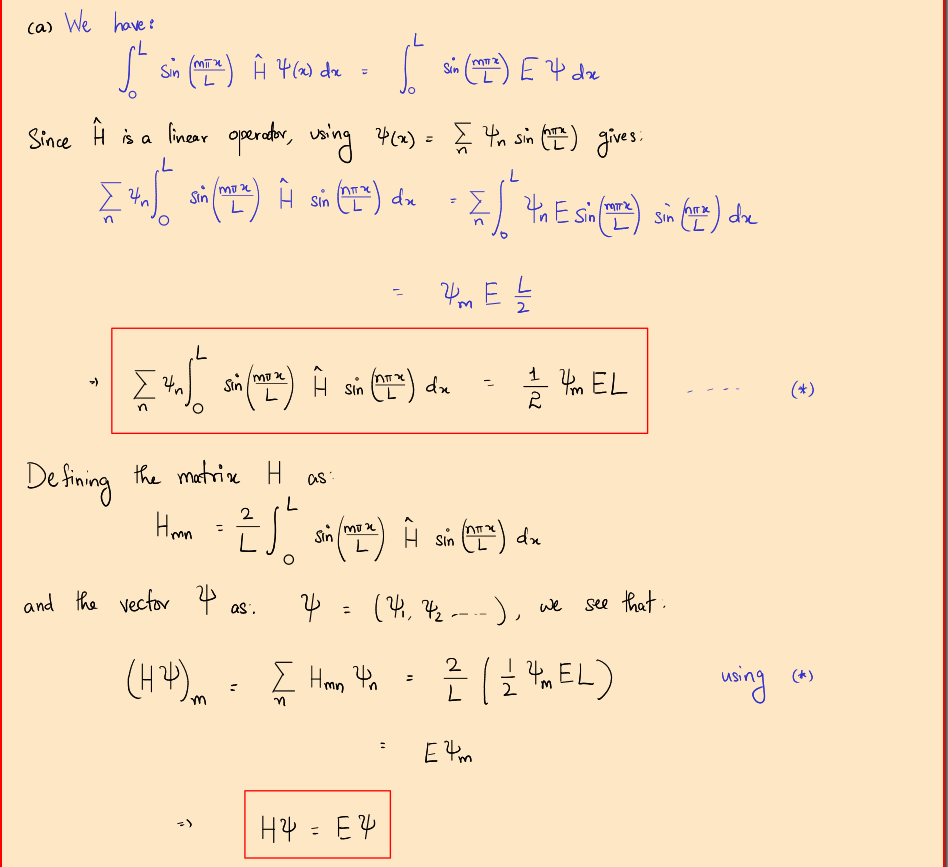 (a) We have:
∫₀ᴸ sin(mπx/L) Ĥ ψ(x) dx = ∫₀ᴸ sin(mπx/L) E ψ dx
Since Ĥ is a linear operator, using ψ(x) = Σₙ ψₙ sin(nπx/L) gives:
Σₙ ψₙ ∫₀ᴸ sin(mπx/L) Ĥ sin(nπx/L) dx = Σₙ ∫₀ᴸ ψₙ E sin(mπx/L) sin(nπx/L) dx
= ψₘ E L/2
⇒ Σₙ ψₙ ∫₀ᴸ sin(mπx/L) Ĥ sin(nπx/L) dx = 1/2 ψₘ EL ---- (*)
Defining the matrix H as:
Hₘₙ = 2/L ∫₀ᴸ sin(mπx/L) Ĥ sin(nπx/L) dx
and the vector ψ as: ψ = (ψ₁, ψ₂ ----), we see that:
(Hψ)ₘ = Σₙ Hₘₙ ψₙ = 2/L (1/2 ψₘ EL) using (*)
= Eψₘ
⇒ Hψ = Eψ